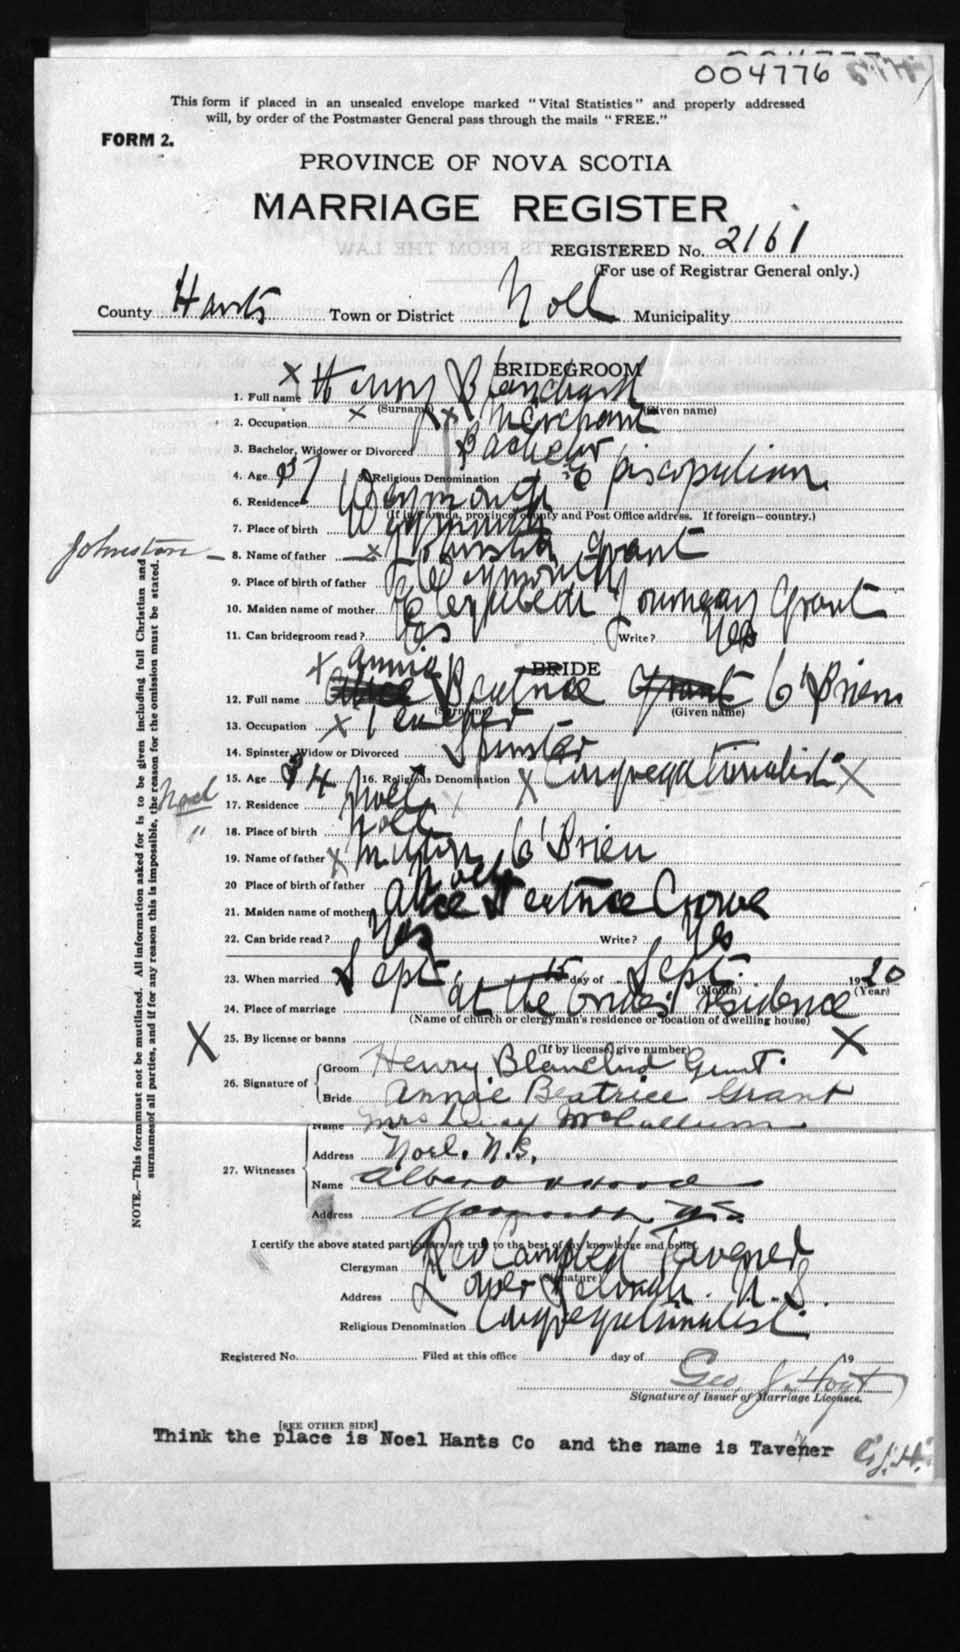 004776
This form if placed in an unsealed envelope marked "Vital Statistics" and properly addressed
will, by order of the Postmaster General pass through the mails "FREE."
FORM 2.
PROVINCE OF NOVA SCOTIA
MARRIAGE REGISTER
REGISTERED No. 2161
(For use of Registrar General only.)
County Hants Town or District Noll Municipality
BRIDEGROOM
1. Full name Henry Blanchard
(Surname) (Given name)
2. Occupation Merchant
3. Bachelor, Widower or Divorced Bachelor
4. Age 37 5. Religious Denomination Episcopalian
6. Residence Weymouth
(If in Canada, province, county and Post Office address. If foreign—country.)
7. Place of birth Weymouth
Johnston
8. Name of father Johnston Grant
9. Place of birth of father Weymouth
10. Maiden name of mother Elizabeth Grant
11. Can bridegroom read? Yes Write? Yes
BRIDE
Annie
12. Full name Alice Beatrice Grant O'Brien
(Surname) (Given name)
13. Occupation Teacher
14. Spinster, Widow or Divorced Spinster
15. Age 34 16. Religious Denomination Congregationalist
Noel
17. Residence Noll
"
18. Place of birth Noll
19. Name of father Milton O'Brien
20 Place of birth of father Noll
21. Maiden name of mother Alice Beatrice Crowe
22. Can bride read? Yes Write? Yes
23. When married Sept. 15 day of Sept. 1920
(Month) (Year)
24. Place of marriage at the brides residence
(Name of church or clergyman's residence or location of dwelling house)
25. By license or banns
(If by license, give number)
26. Signature of
Groom Henry Blanchard Grant
Bride Annie Beatrice Grant
27. Witnesses
Name Mrs McCallum
Address Noel. N.S.
Name
Address Yarmouth N.S.
I certify the above stated particulars are true to the best of my knowledge and belief.
Clergyman Rev Campbell Tavener
(Signature)
Address Lower Selmah. N.S.
Religious Denomination Congregationalist
Registered No. Filed at this office day of 19
Geo. J. Hoyt
Signature of Issuer of Marriage Licenses.
[SEE OTHER SIDE]
Think the place is Noel Hants Co and the name is Tavener
G.J.H.
NOTE.—This form must not be mutilated. All informations asked for is to be given including full Christian and
surnames of all parties, and if for any reason this is impossible, the reason for the omission must be stated.